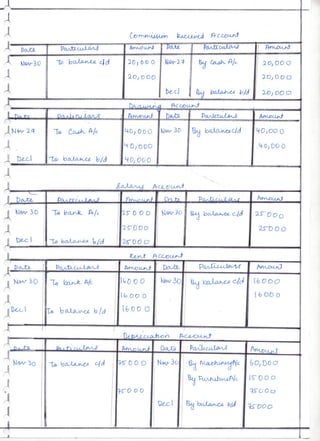 Commission Received Account
Date Particulars Amount Date Particulars Amount
Nov 30 To balance c/d 20,000 Nov 29 By Cash A/c 20,000
20,000 20,000
Dec 1 By balance b/d 20,000
Drawing Account
Date Particulars Amount Date Particulars Amount
Nov 29 To Cash A/c 40,000 Nov 30 By balance c/d 40,000
40,000 40,000
Dec 1 To balance b/d 40,000
Salary Account
Date Particulars Amount Date Particulars Amount
Nov 30 To bank A/c 25000 Nov 30 By balance c/d 25000
25000 25000
Dec 1 To balance b/d 25000
Rent Account
Date Particulars Amount Date Particulars Amount
Nov 30 To bank A/c 16000 Nov 30 By balance c/d 16000
16000 16000
Dec 1 To balance b/d 16000
Depreciation Account
Date Particulars Amount Date Particulars Amount
Nov 30 To balance c/d 75000 Nov 30 By Machinery A/c 60,000
By Furniture A/c 15000
75000 75000
Dec 1 By balance b/d 75000